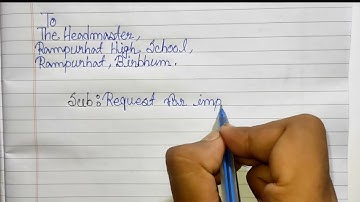 To
The Headmaster,
Rampurhat High School,
Rampurhat, Birbhum.
Sub: Request for imp